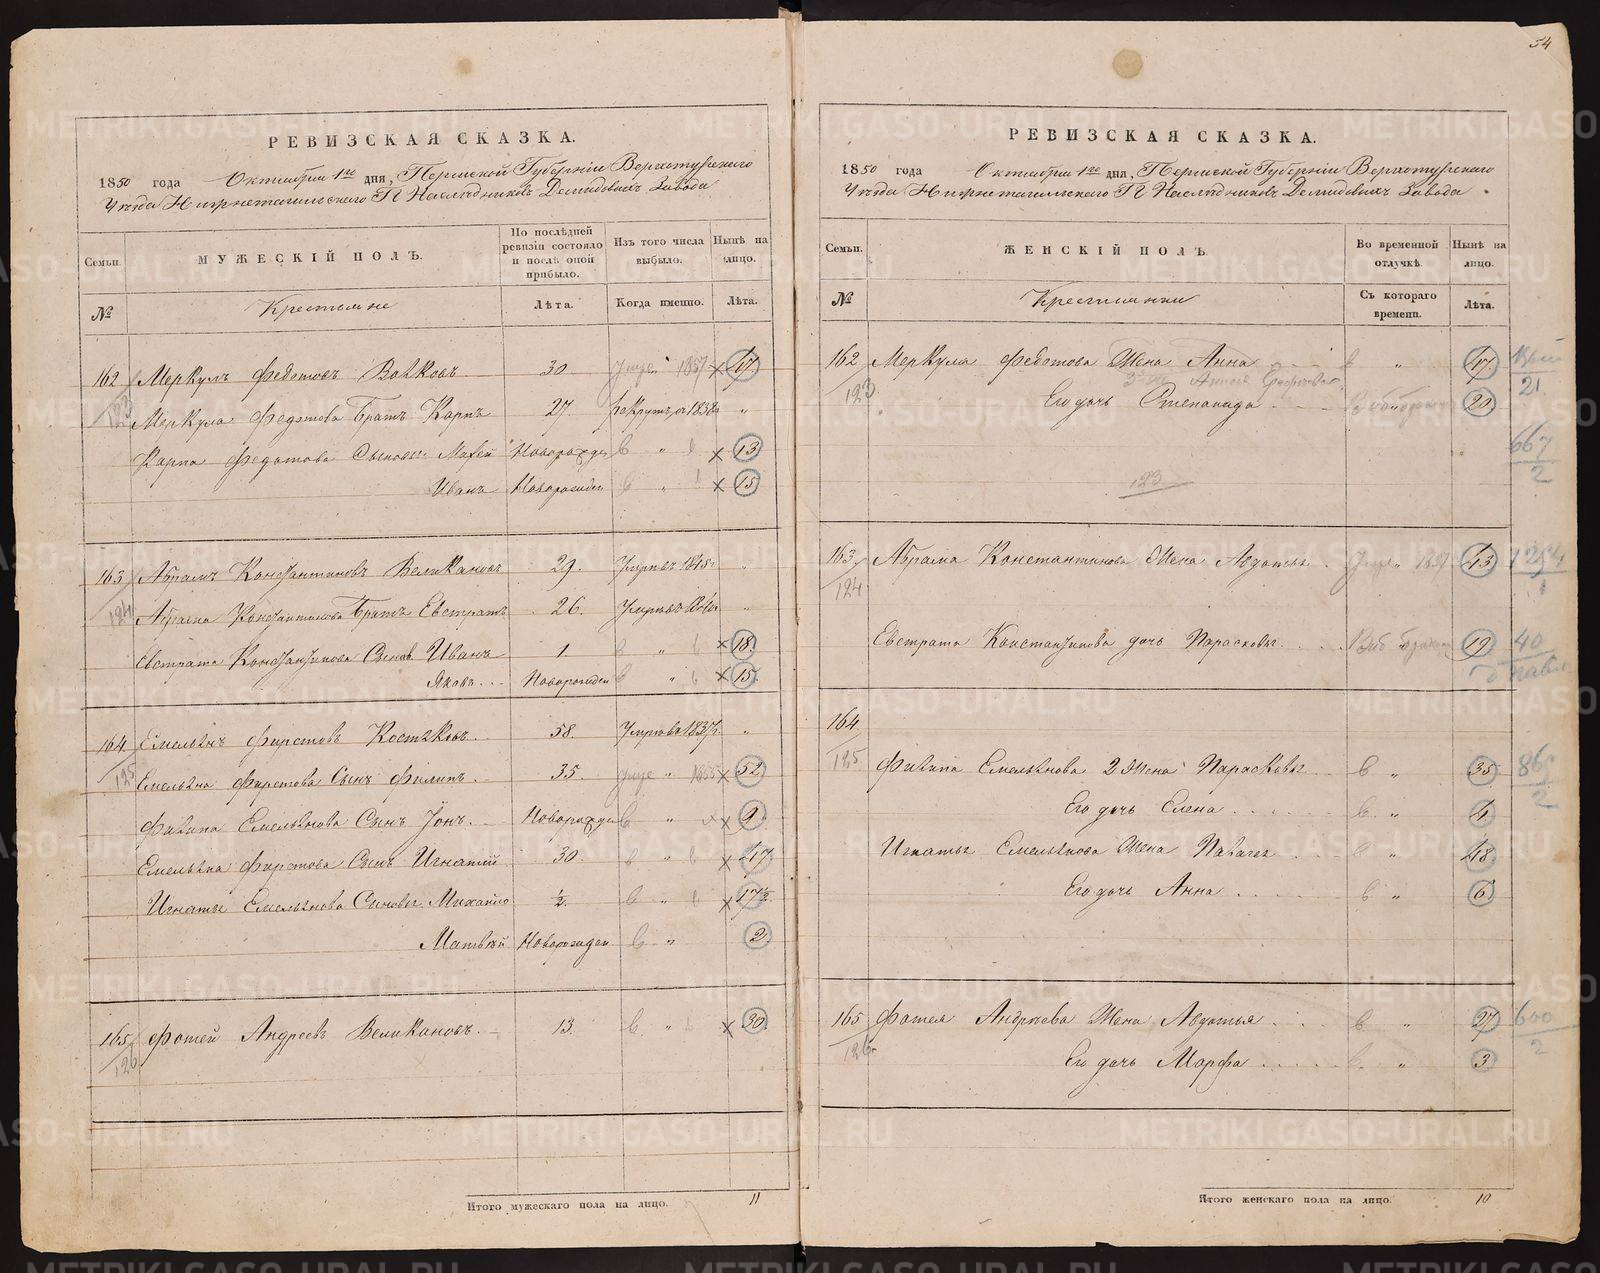 54
РЕВИЗСКАЯ СКАЗКА.
1850 года Октября 1го дня, Пермской Губерніи Верхотурскаго
Уѣзда Нижнетагильскаго Гг Наслѣдниковъ Демидовыхъ Завода
Семьи. МУЖЕСКІЙ ПОЛЪ. По послѣдней ревизіи состояло и послѣ оной прибыло. Изъ того числа выбыло. Нынѣ на лицо.
№ Крестьяне Лѣта. Когда именно. Лѣта.
162 Меркулъ Федотовъ Волковъ 30 1857 47
123 Меркула Федотова Братъ Карпъ 27 рекрутъ 1838 "
Карпа Федотова Сыновья: Новорожден " 13
Иванъ Новорожден " 15
163 Абрамъ Константиновъ Великановъ 29. Умеръ 1845 "
124 Абрама Константинова Братъ Евстратъ 26. Умеръ "
Евстрата Константинова Сынов. Иванъ 1. " 18.
Яковъ Новорожден " 15.
164 Емельянъ Фирстовъ Костиковъ 58. Умеръ 1837 "
125 Емельяна Фирстова Сынъ Филипъ 35. " 1855 52
Филипа Емельянова Сынъ Іонъ. Новорожден " 9.
Емельяна Фирстова Сынъ Игнатій 30. " 47
Игнатья Емельянова Сыновья Михайло ½. " 17½
Матвѣй Новорожден " 2
165 Фотей Андреевъ Великановъ. 13. " 30
126
Итого мужескаго пола на лицо. 11
РЕВИЗСКАЯ СКАЗКА.
1850 года Октября 1го дня, Пермской Губерніи Верхотурскаго
Уѣзда Нижнетагильскаго Гг Наслѣдниковъ Демидовыхъ Завода
Семьи. ЖЕНСКІЙ ПОЛЪ. Во временной отлучкѣ. Нынѣ на лицо.
№ Крестьянки Съ котораго времени. Лѣта.
162 Меркула Федотова Жена Анна " 47
123 Его дочь Степанида " 20
21
667
2
123
163 Абрама Константинова Жена Авдотья 1857 43
124
Евстрата Константинова дочь Парасковья 19 40
164
125 Филипа Емельянова 2 Жена Парасковья " 35
Его дочь Елена " 4
2
Игнатья Емельянова Жена Палагея " 48
Его дочь Анна " 6
165 Фотея Андреева Жена Авдотья " 27 600
126 Его дочь Марфа " 3 2
Итого женскаго пола на лицо. 10
METRIKI.GASO-URAL.RU